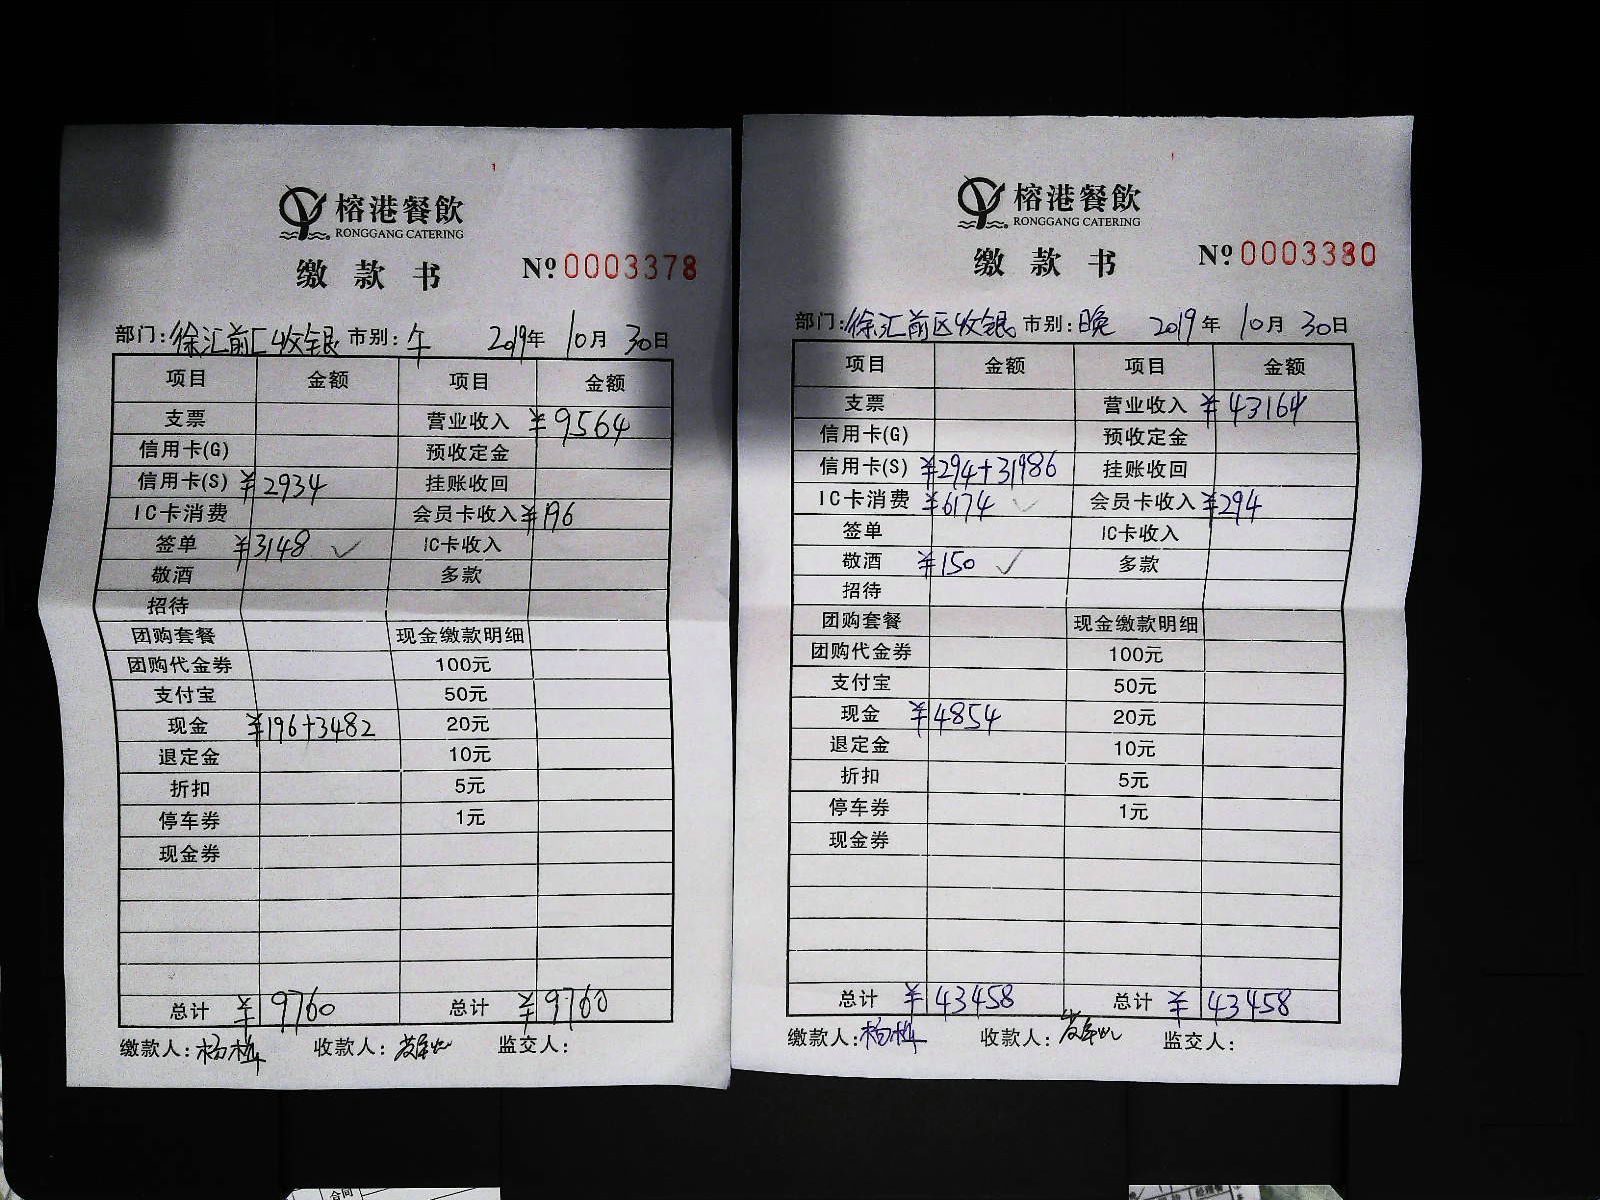 榕港餐飲
RONGGANG CATERING
缴款书 Nº 0003378
部门:徐汇前厂收银 市别:午 2019年10月30日
项目 金额 项目 金额
支票 营业收入 ¥9564
信用卡(G) 预收定金
信用卡(S) ¥2934 挂账收回
IC卡消费 会员卡收入 ¥196
签单 ¥3148 ✓ IC卡收入
敬酒 多款
招待
团购套餐 现金缴款明细
团购代金券 100元
支付宝 50元
现金 ¥196+3482 20元
退定金 10元
折扣 5元
停车券 1元
现金券
总计 ¥9760 总计 ¥9760
缴款人:杨桦 收款人: 监交人:
榕港餐飲
RONGGANG CATERING
缴款书 Nº 0003380
部门:徐汇前区收银 市别:晚 2019年10月30日
项目 金额 项目 金额
支票 营业收入 ¥43164
信用卡(G) 预收定金
信用卡(S) ¥294+31986 挂账收回
IC卡消费 ¥6174 ✓ 会员卡收入 ¥294
签单 IC卡收入
敬酒 ¥150 ✓ 多款
招待
团购套餐 现金缴款明细
团购代金券 100元
支付宝 50元
现金 ¥4854 20元
退定金 10元
折扣 5元
停车券 1元
现金券
总计 ¥43458 总计 ¥43458
缴款人:杨桦 收款人: 监交人:
合同